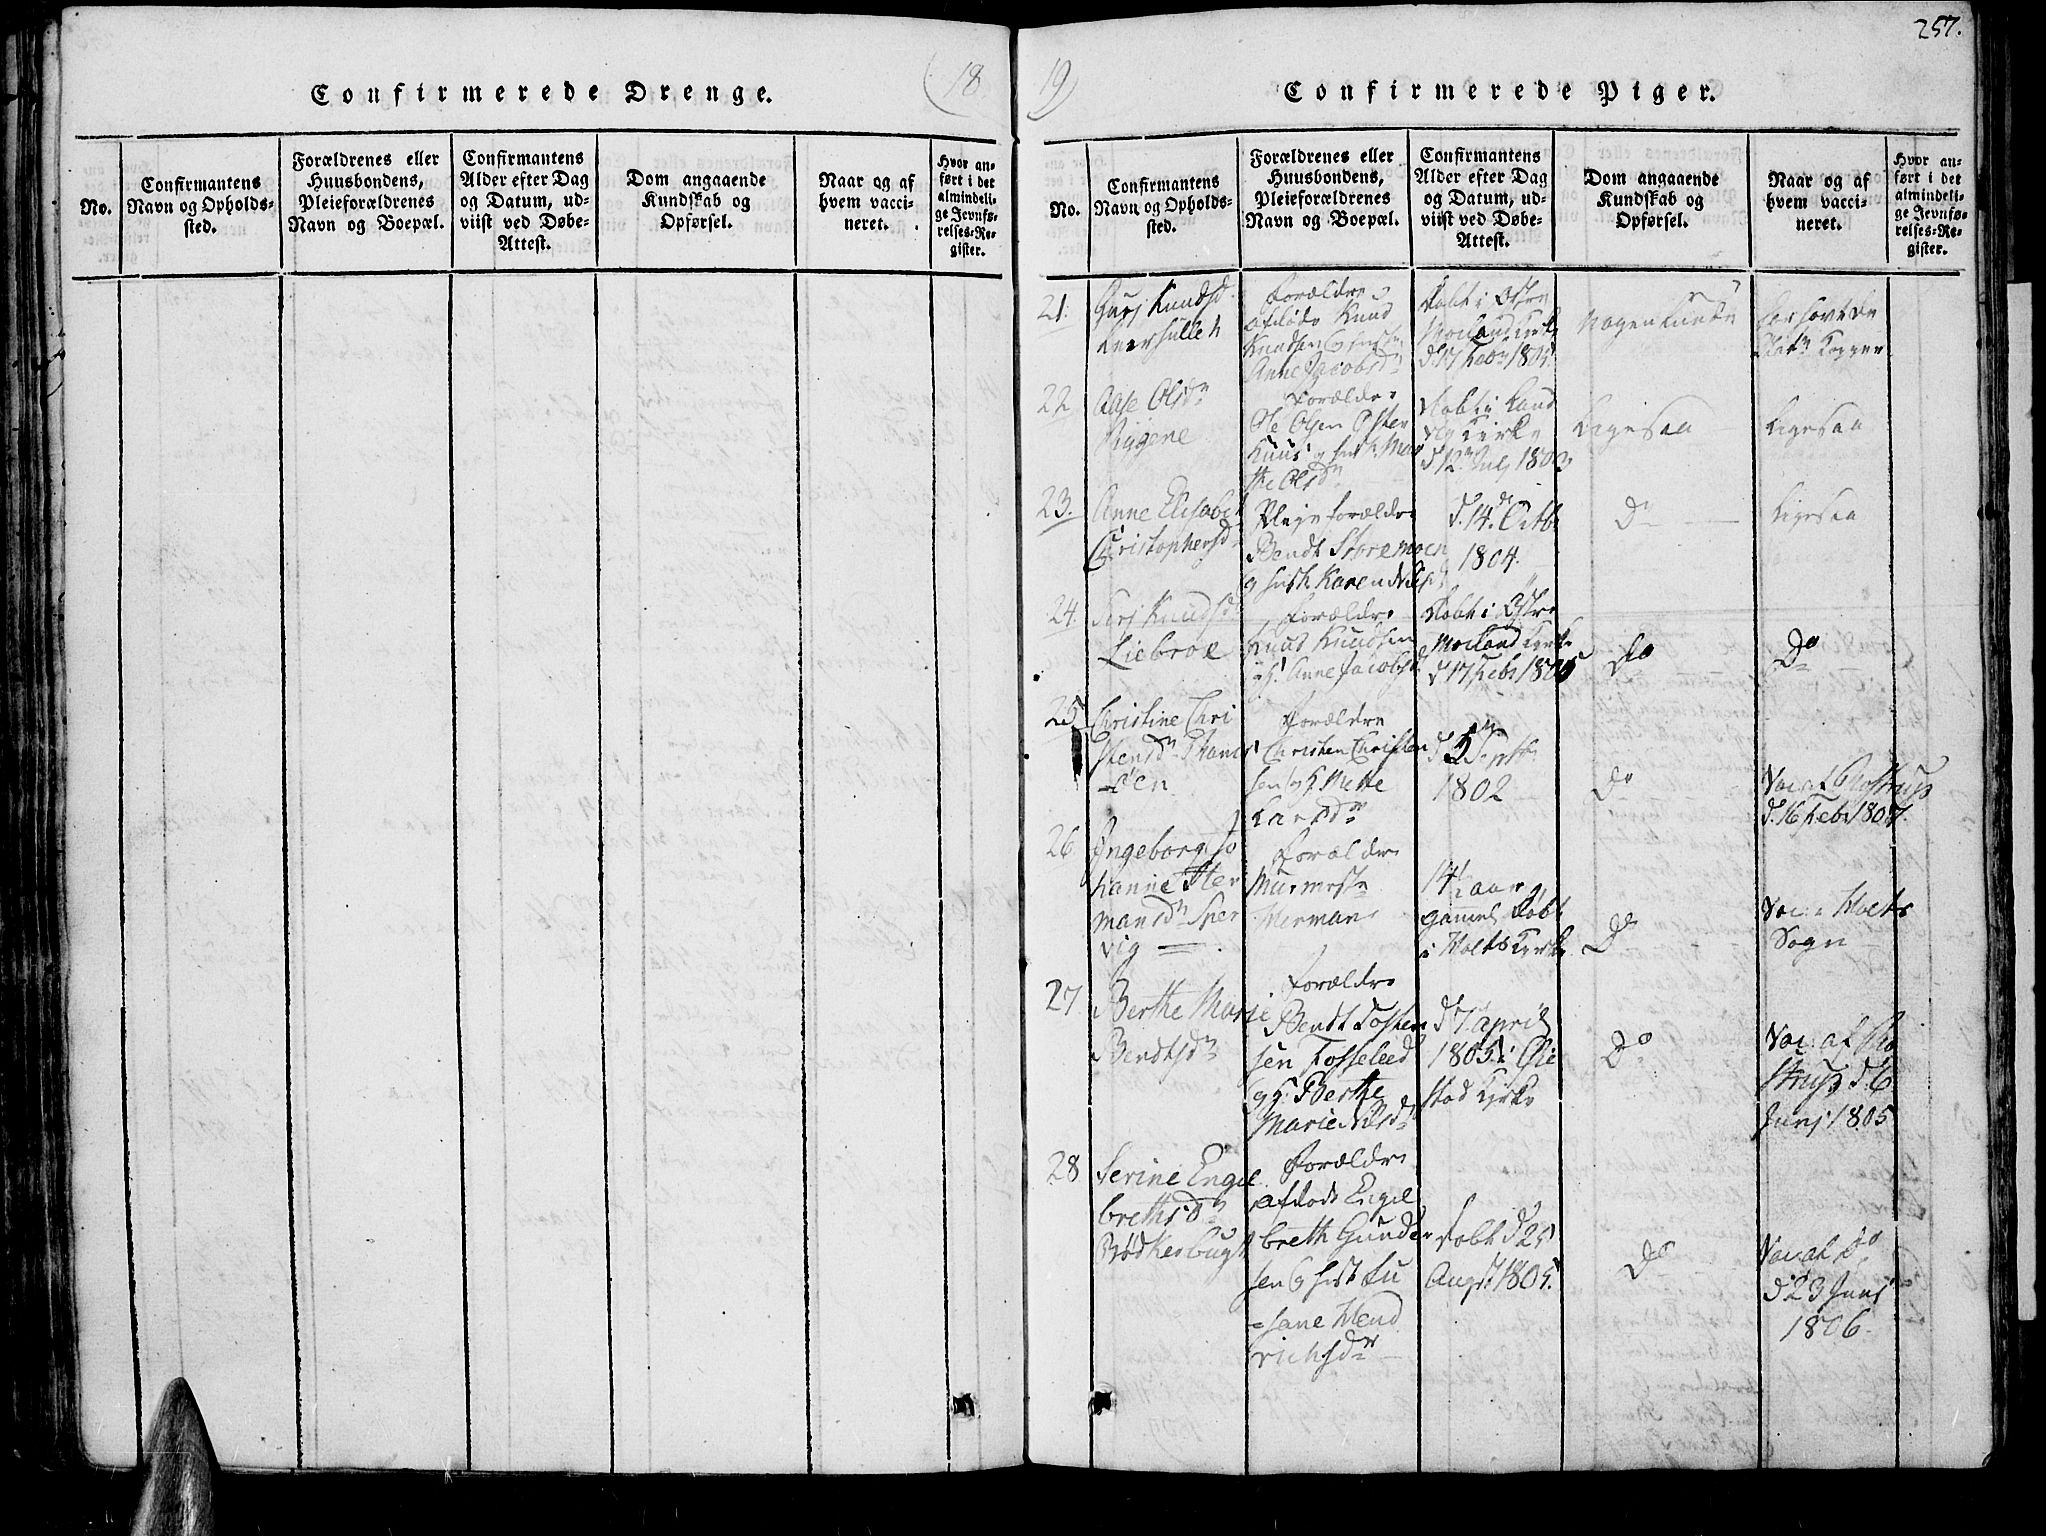 257.
(18
19)
Confirmerede Drenge.
No.
Confirmantens
Navn og Opholds-
sted.
Forældrenes eller
Huusbondens,
Pleieforældrenes
Navn og Boepæl.
Confirmantens
Alder efter Dag
og Datum, ud-
viist ved Døbe-
Attest.
Dom angaaende
Kundskab og
Opførsel.
Naar og af
hvem vacci-
neret.
Hvor an-
ført i det
almindeli-
ge Jevnfø-
relses-Re-
gister.
Confirmerede Piger.
No.
Confirmantens
Navn og Opholds-
sted.
Forældrenes eller
Huusbondens,
Pleieforældrenes
Navn og Boepæl.
Confirmantens
Alder efter Dag
og Datum, ud-
viist ved Døbe-
Attest.
Dom angaaende
Kundskab og
Opførsel.
Naar og af
hvem vacci-
neret.
Hvor an-
ført i det
almindeli-
ge Jevnfø-
relses-Re-
gister.
21.
Knudsd
Forældre
afdøde Knud
Knudsen
Anne Jacobsdr
Døbt i Østre
Moland Kirke
d. 17 Febr 1805
har havt de
Kopper
22
Aase Olsdr
Riggene
Forældre
Ole Olsen Oster
Kuus
the Olsdr
Døbt i Land
vig Kirke
d 12 July 1802
Ligesaa
Ligesaa
23.
Anne Elisabeth
Christophersd
Pleje forældre
Bendt Storemoen
Karen
d. 14de Octb
1804.
Do
Ligesaa
24.
Knudsd
Liebroe
Forældre
Knud Knudsen
Anne Jacobsd
Døbt i Østre
Moeland Kirke
d 17 Febr 1805
Do
Do
25
Christine Chri
stensdr
Forældre
Christen Christen
sen og H. Mette
Larsdr
d 5 Septbr
1802
Do
Vac af Rostrup
d. 16 Febr 1807.
26
Ingeborg Jo
hanne Her
mansdr Sper
vig =
Forældre
Murmestr
Herman
14½ aar
gammel Døbt
i Holts Kirke
Do
Vac. i Holts
Sogn
27
Berthe Marie
Bendtsdr
Forældre
Bendt Tosten
sen Fosseleed
og H. Berthe
Marie Nilsdr
d 7 April
1805 i Øie
stad Kirke
Do
Vac. af Ro
strup d. 6
Junj 1805
28
Serine Engel
brethsdr
Bødkerbugt
Forældre
afdøde Engel
breth Gunder
sen og Hust Su
=sane Hend
richsdr
Døbt d 25
Augst 1805.
Do
Vac af Do
d 23 Junj
1806.